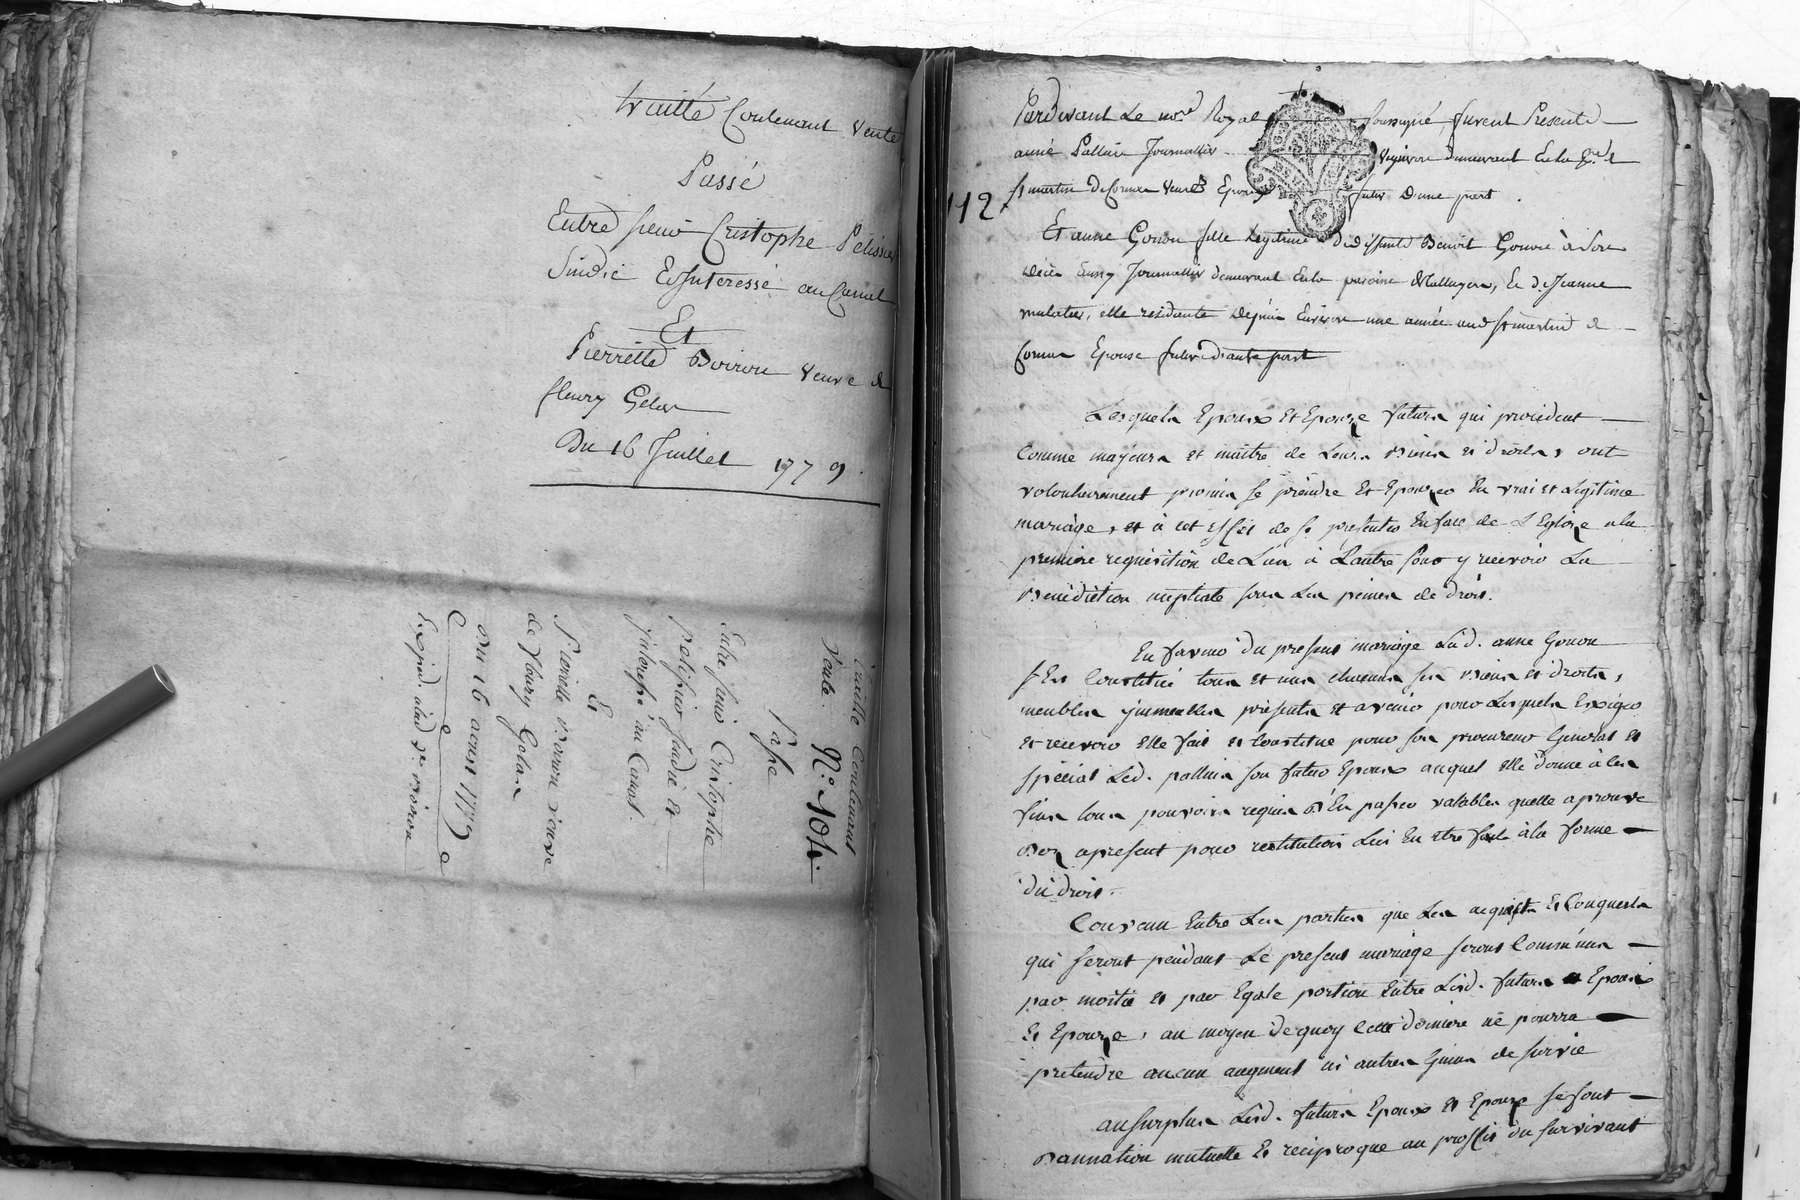 traitté Contenant Vente
Passé
Entre sieur Cristophe Pelissier
Sindic Et Interessé au Canal
Et
Pierrette Boiron Veuve de
fleury Gelas
Du 16 Juillet 1779.
Traitté Contenant
Vente. N.º 101.
Passé
Entre sieur Cristophe
Pelissier sindic et
interessé au Canal
Et
Pierrette Boiron veuve
de fleury Gelas
Du 16 aoust 1779
Expedié à lad. ve. Boiron
112
Pardevant Le nore. Royal soussigné, furent Presents
anne Palluis Journallier Vigneron demeurant En la
st martin de Cornas veuf Epoux futur d'une part.
Et anne Gonon fille Legitime de deffunt Benoit Gonon à son
décès Journallier demeurant En la paroisse, Et de Jeanne
mulatier, elle residante depuis Environ une année aud st martin de
Cornas Epouse future d'autre part
Lesquels Epoux Et Epouze futurs qui procedent
Comme majeurs et maitre de Leurs Biens et droits, ont
volontairement promis se prendre Et Epouzer En vrai et Legitime
mariage, et à cet effet de se presenter En face de L'Eglize a la
premiere requisition de L'un à L'autre pour y recevoir La
Benediction nuptiale sous Les peines de droit.
En faveur du present mariage Lad. anne Gonon
s'Est Constitué tous et uns chacuns ses Biens et droits,
meubles immeubles présents et avenir pour Lesquels Exiger
et recevoir Elle fait et Constitue pour son procureur General et
special Led. palluis son futur Epoux auquel Elle donne à les
fins tous pouvoirs requis d'En passer valables quelle aprouve
dez apresent pour restitution Lui En etre faite à la forme
du droit.
Convenu Entre Les parties que Les acquets Et Conquests
qui seront pendant Le present mariage seront Communs
par moitié et par Egale portion Entre Lesd. futurs Epoux
Et Epouze, au moyen de quoy cette derniere ne pourra
pretendre aucun augment ni autres Gains de survie
au surplus Lesd. futurs Epoux Et Epouze se font
Donnation mutuelle Et reciproque au proffit du survivant